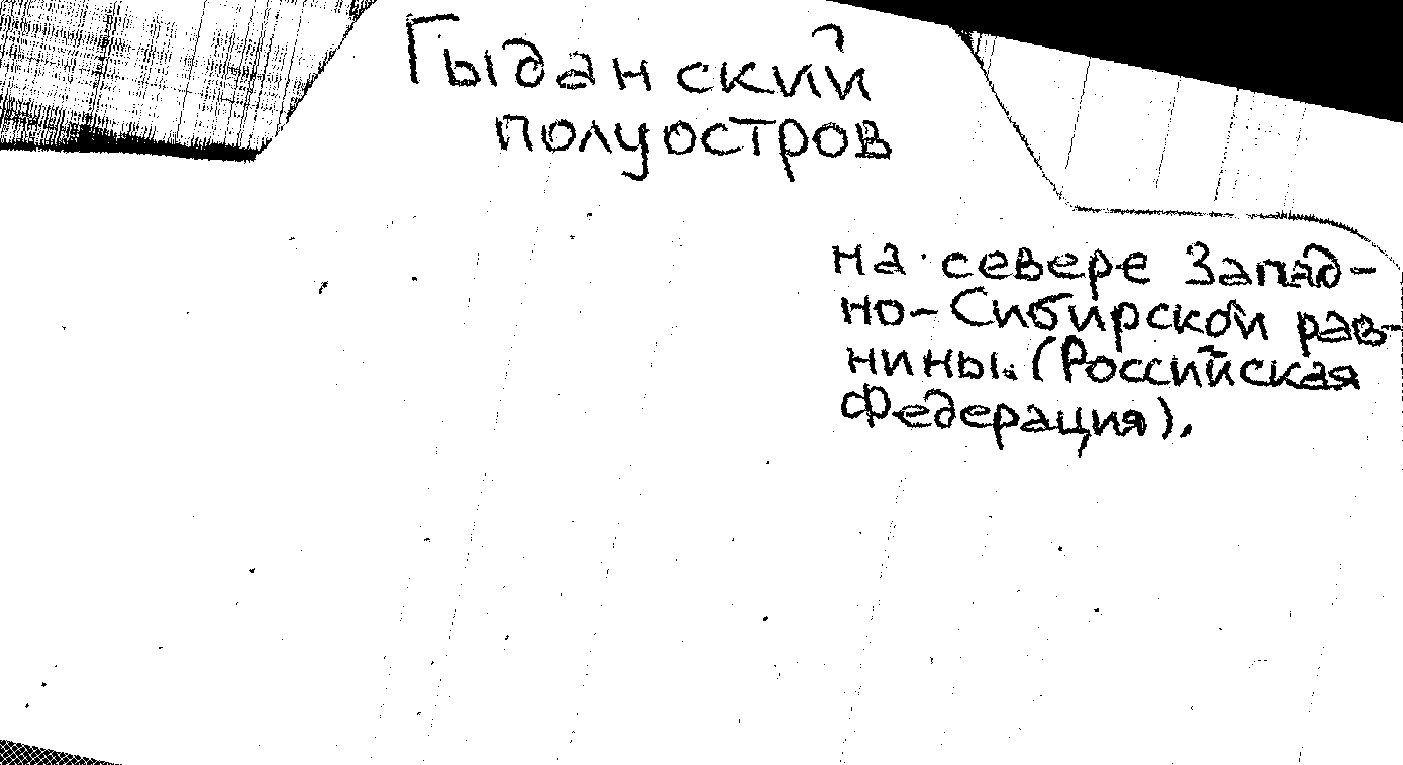 Гыданский
полуостров
на севере Запад-
но-Сибирской рав-
нины. (Российская
Федерация).